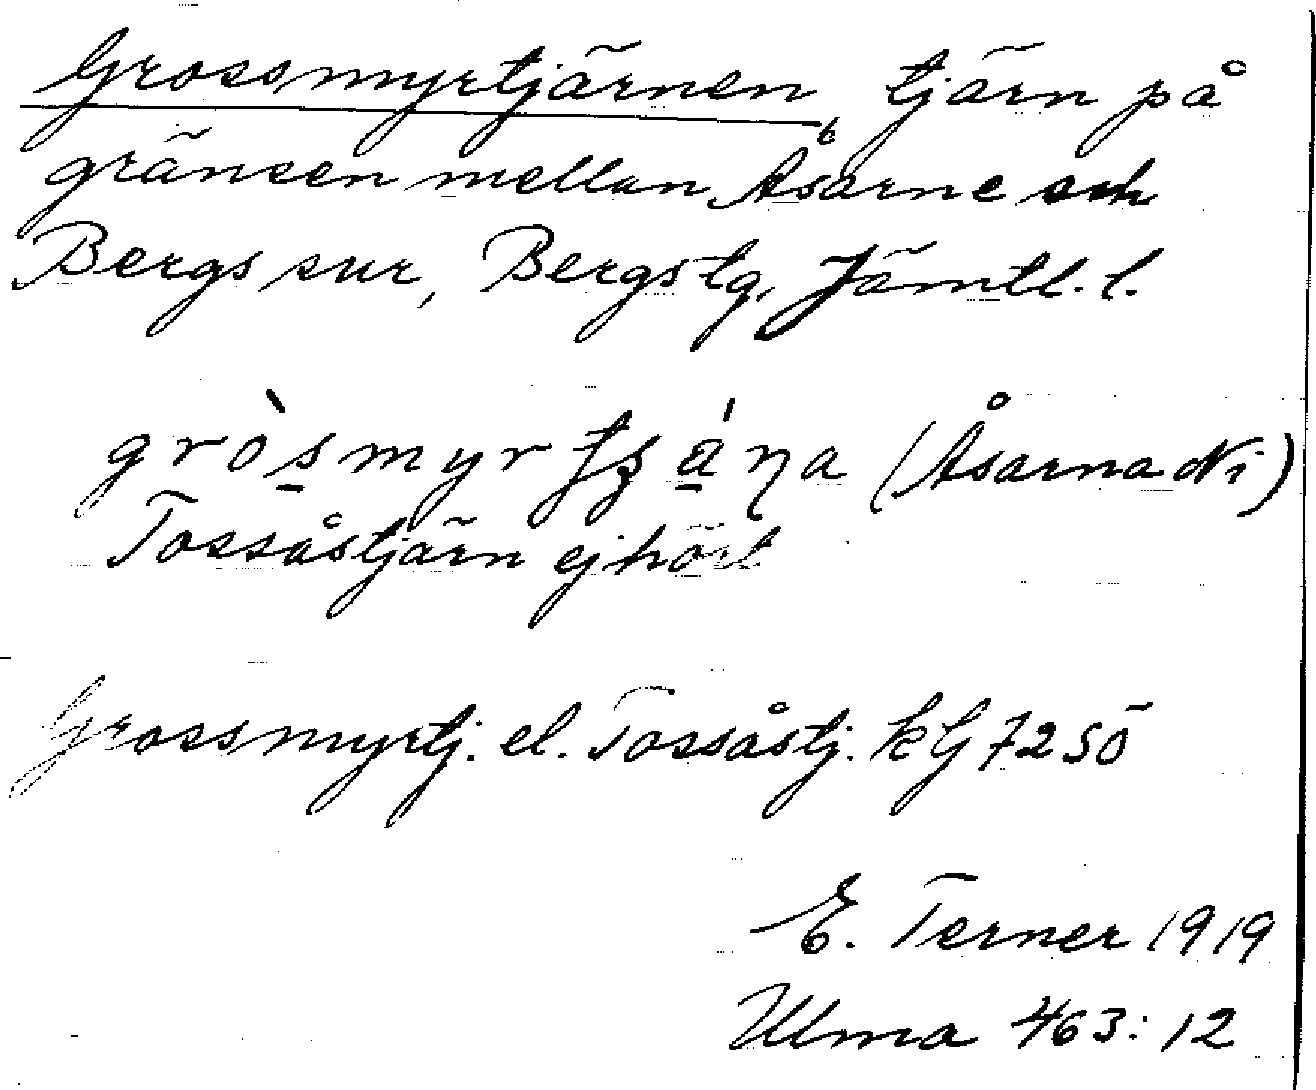 Grossmyrtjärnen, tjärn på
gränsen mellan Åsarne och
Bergs snr, Bergs tg, Jämtl. l.
gròsmyr tʂáŋa (Åsarna Ni)
Tossåstjärn ej hört
Grossmyrtj. el. Tossåstj. kG 72 SÖ
E. Terner 1919
Ulma 463:12